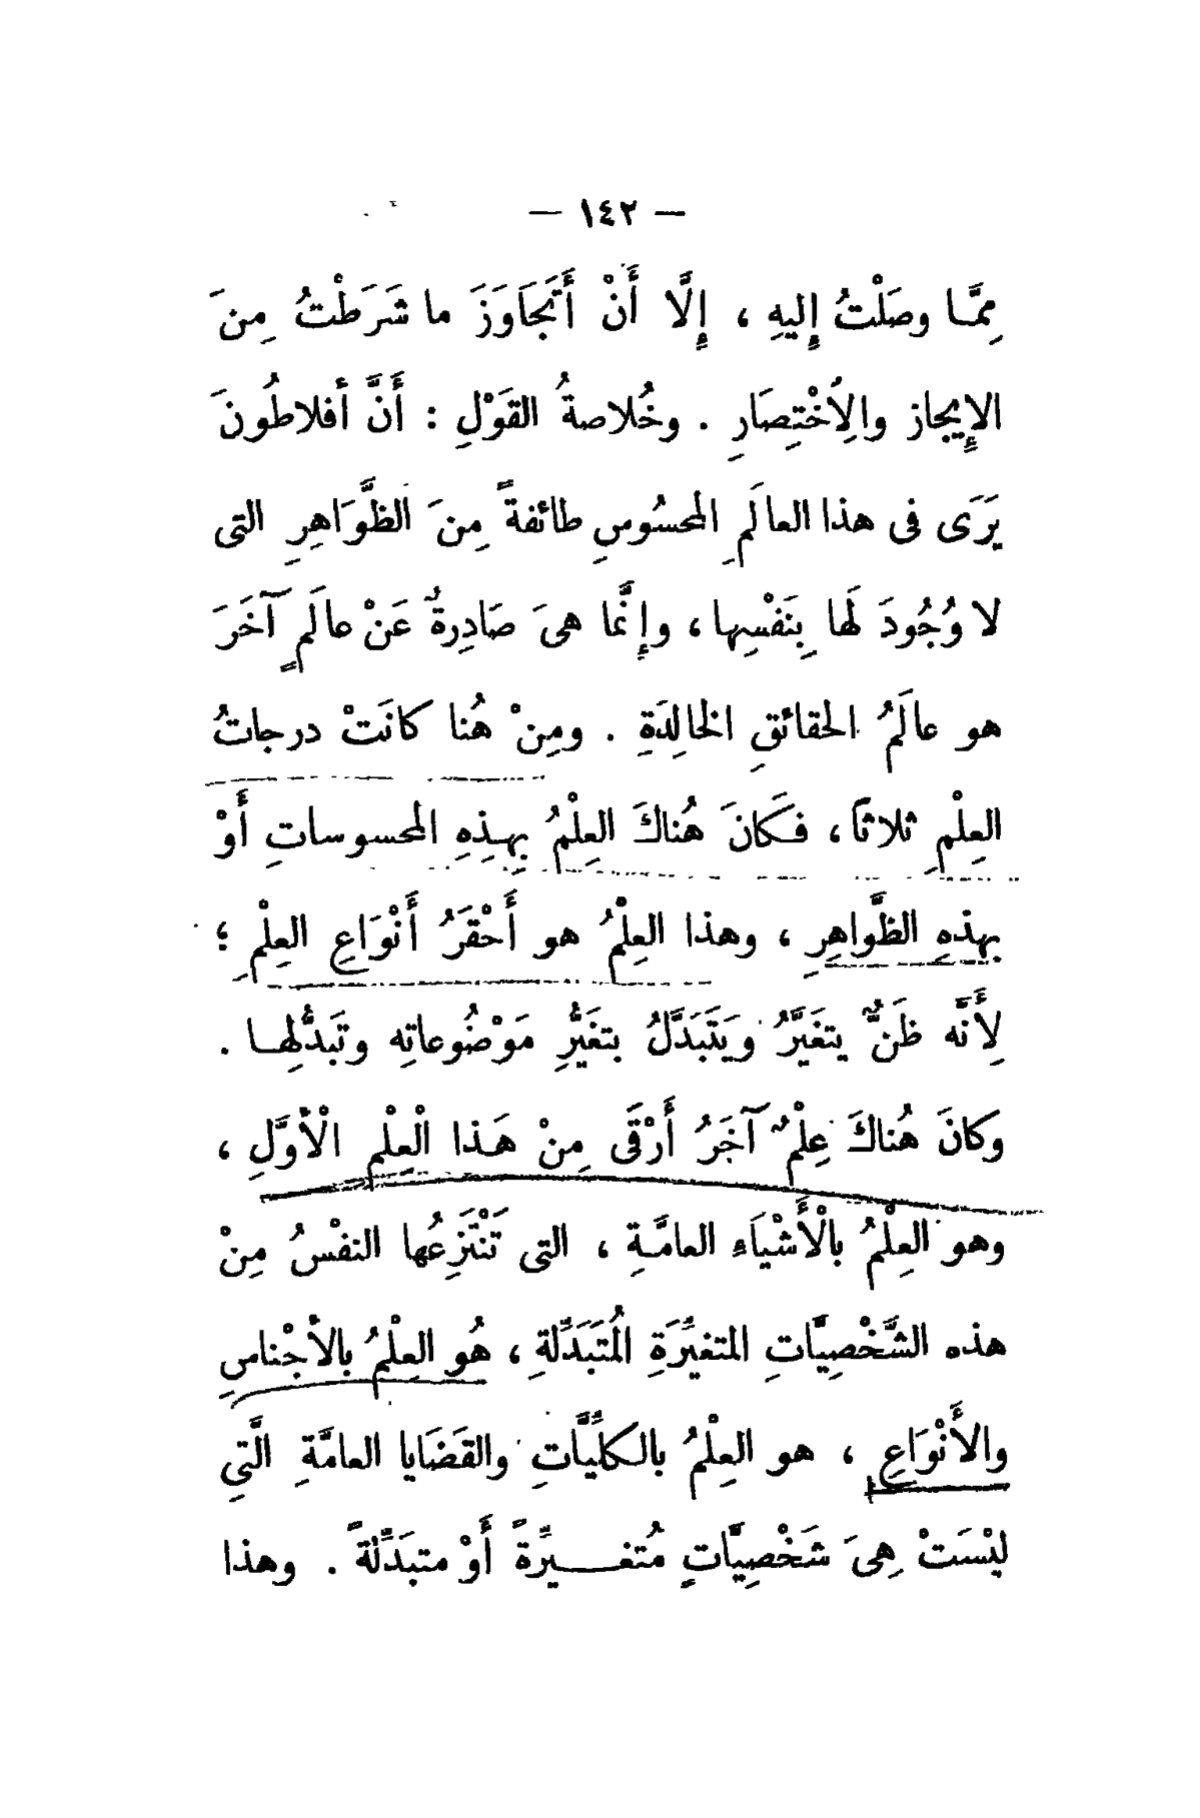 — ١٤٢ —
مِمَّا وصَلْتُ إِليهِ ، إِلَّا أَنْ أَتَجَاوَزَ ما شَرَطْتُ مِنَ
الإِيجاز والِاُخْتِصَارِ . وخُلاصةُ القَوْلِ : أَنَّ أفلاطُونَ
يَرَى فى هذا العالَمِ المحسُوسِ طائفةً مِنَ الظَّوَاهِرِ التى
لا وُجُودَ لَها بِنَفْسِها ، وإِنَّما هىَ صَادِرةٌ عَنْ عالَمٍ آخَرَ
هو عالَمُ الحقائقِ الخالِدَةِ . ومِنْ هُنا كانَتْ درجاتُ
العِلْمِ ثلاثاً ، فكَانَ هُناكَ العِلْمُ بِهذِهِ المحسوساتِ أَوْ
بهذِهِ الظَّواهِرِ ، وهذا العِلْمُ هو أَحْقَرُ أَنْوَاعِ العِلْمِ ؛
لِأَنَّه ظَنٌّ يتغَيَّرُ ويَتَبَدَّلُ بتغَيُّرِ مَوْضُوعاتِه وتَبدُّلِها .
وكانَ هُناكَ عِلْمٌ آخَرُ أَرْقَى مِنْ هَذا الْعِلْمِ الْأَوَّلِ ،
وهو العِلْمُ بالْأَشْيَاءِ العامَّةِ ، التى تَنْتَزِعُها النفْسُ مِنْ
هذه الشَّخْصِيَّاتِ المتغيِّرَةِ المُتَبَدِّلةِ ، هُو العِلْمُ بالأجْناسِ
والأَنْوَاعِ ، هو العِلْمُ بالكلِّيَّاتِ والقَضَايا العامَّةِ الَّتِي
ليْسَتْ هِىَ شَخْصِيَّاتٍ مُتغـيِّرةً أَوْ متبَدِّلةً . وهذا